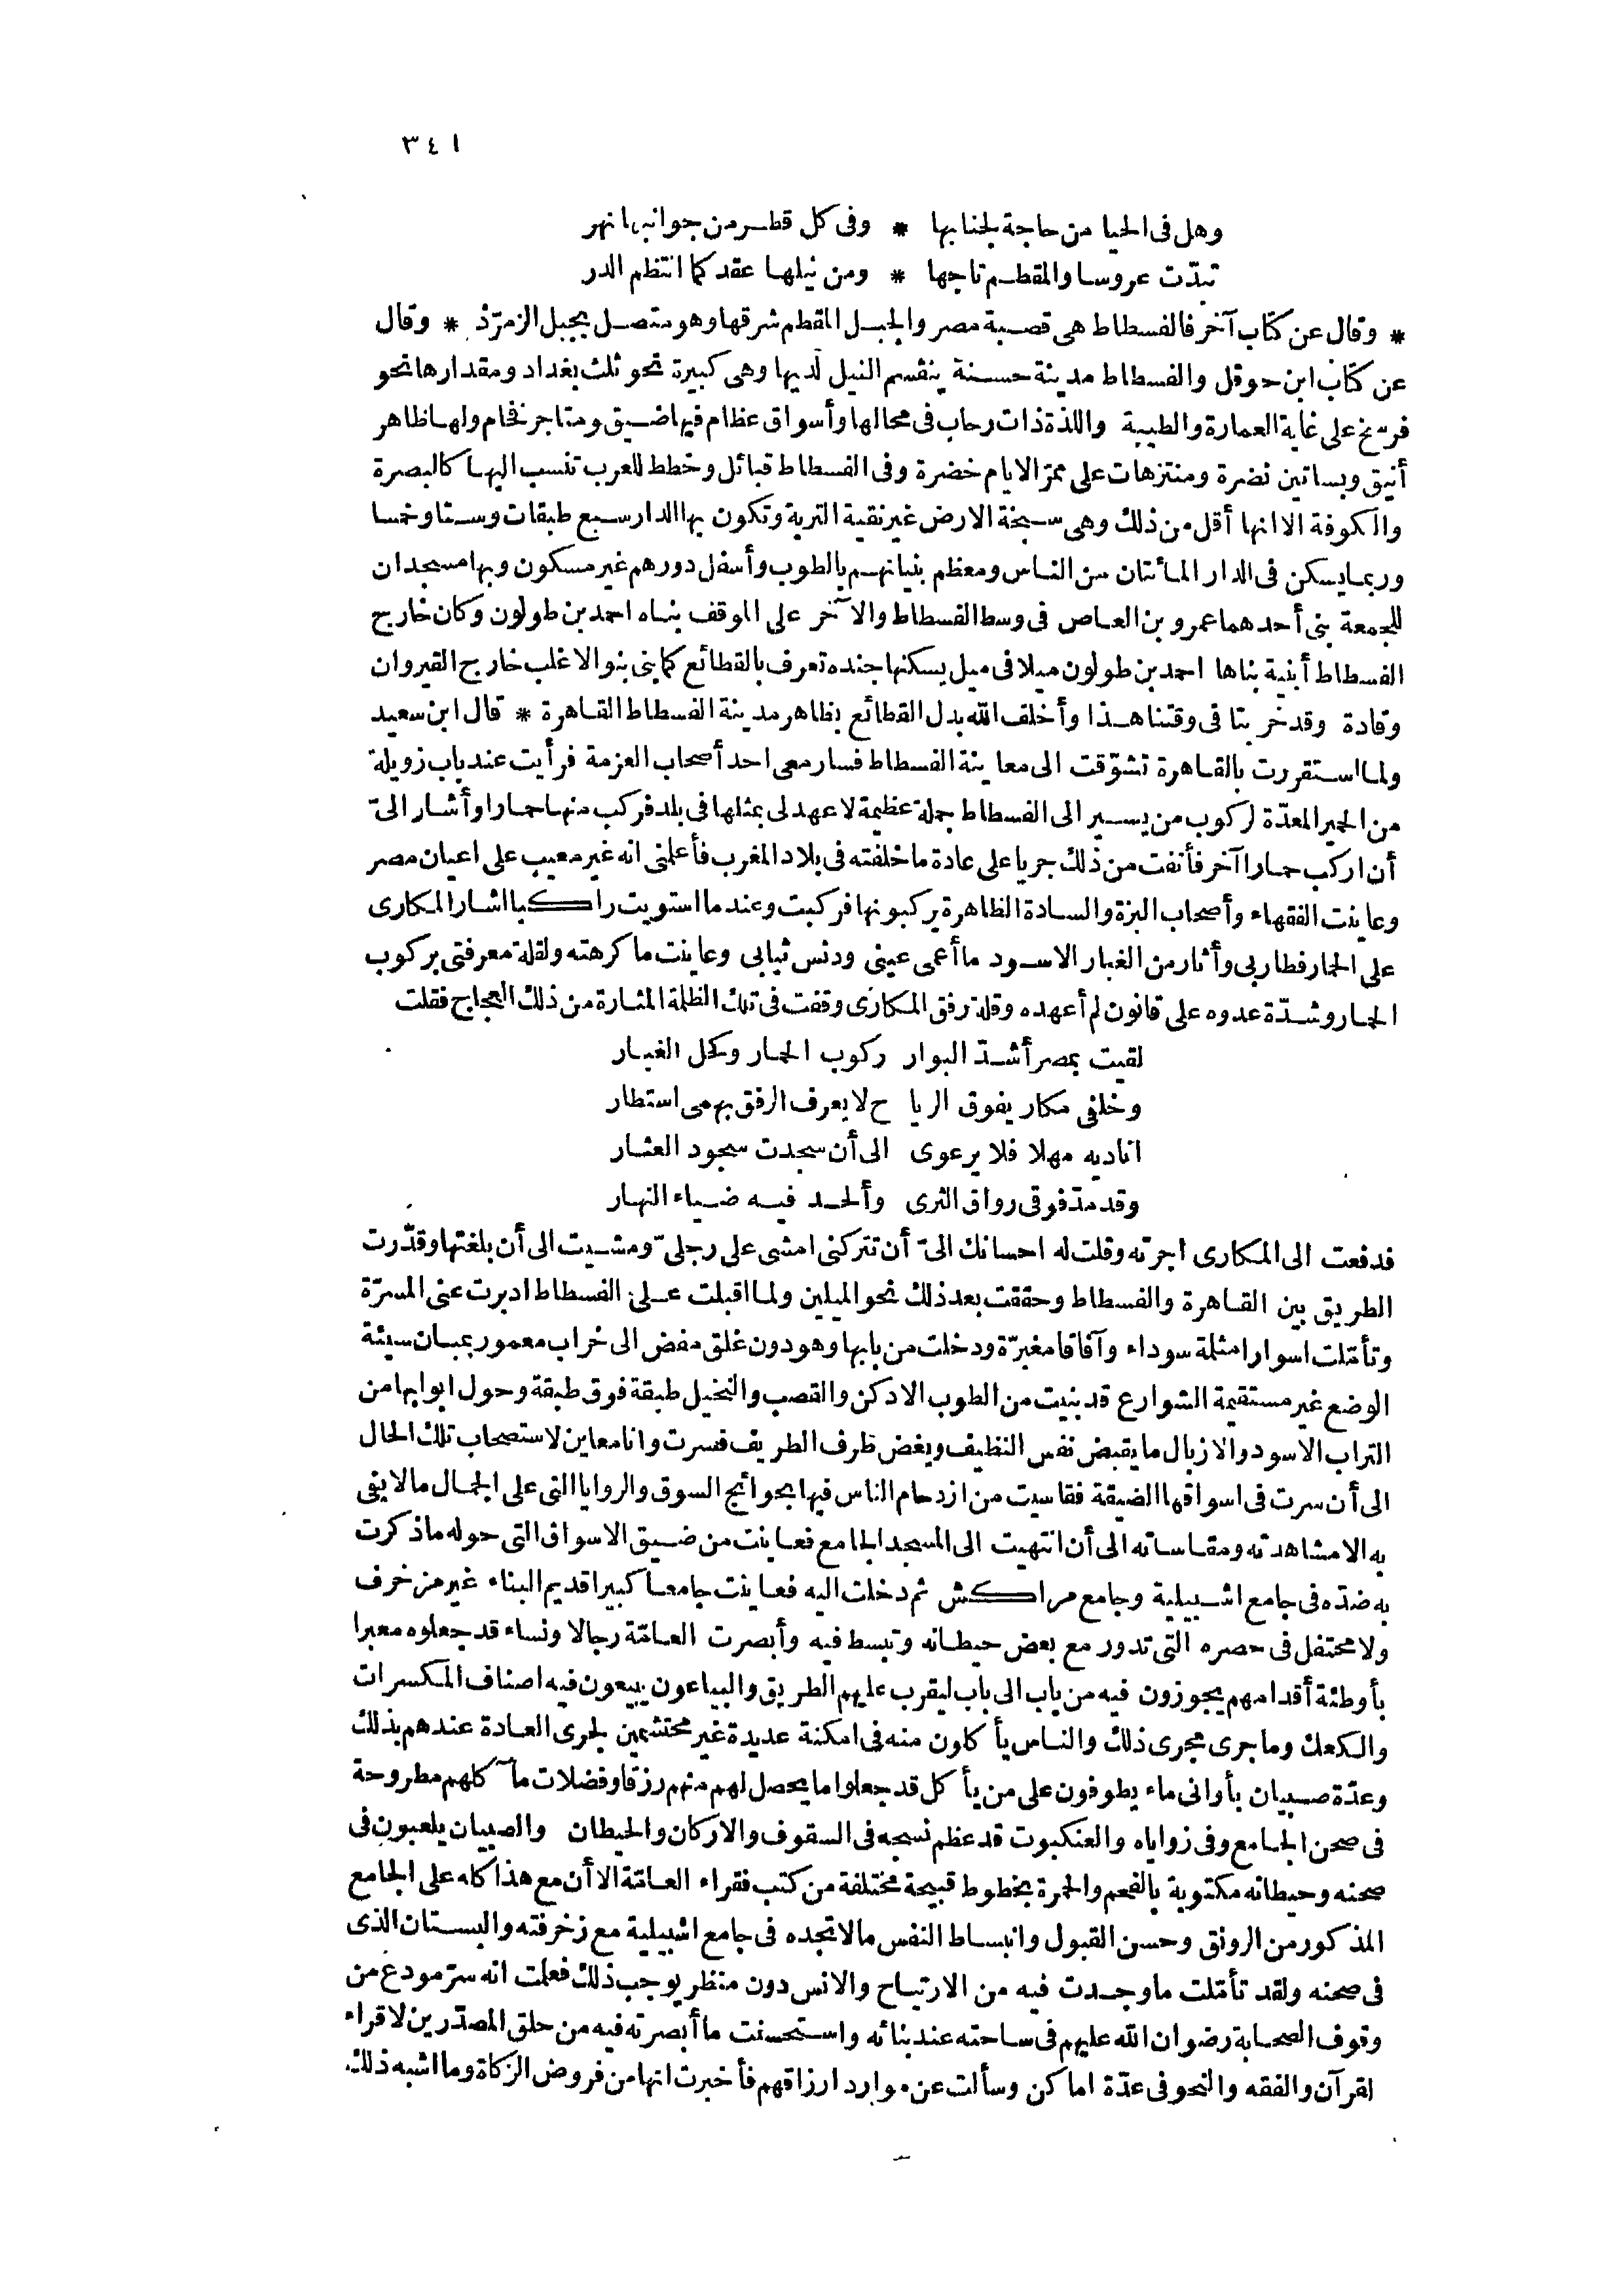 ٣٤١
وهل فى الحيا من حاجة لجنابها * وفى كل قطر من جوانبها نهر
تبدّت عروسا والمقطم تاجها * ومن نيلها عقد كما انتظم الدر
* وقال عن كتاب آخر فالفسطاط هى قصبة مصر والجبل المقطم شرقها وهو متصل بجبل الزمرّذ * وقال
عن كتاب ابن حوقل والفسطاط مدينة حسنة ينقسم النيل لديها وهى كبيرة نحو ثلث بغداد ومقدارها نحو
فرسخ على غاية العمارة والطيبة واللذة ذات رحاب فى محالها وأسواق عظام فيها ضيق ومتاجر فخام ولها ظاهر
أنيق وبساتين نضرة ومنتزهات على ممرّ الايام خضرة وفى الفسطاط قبائل وخطط للعرب تنسب اليها كالبصرة
والكوفة الا انها أقل من ذلك وهى سبخة الارض غير نقية التربة وتكون بها الدار سبع طبقات وستا وخمسا
وربما يسكن فى الدار المأتان من الناس ومعظم بنيانهم بالطوب وأسفل دورهم غير مسكون وبها مسجدان
للجمعة بنى أحدهما عمرو بن العاص فى وسط الفسطاط والآخر على الموقف بناه احمد بن طولون وكان خارج
الفسطاط أبنية بناها احمد بن طولون ميلا فى ميل يسكنها جنده تعرف بالقطائع كما بنى بنو الاغلب خارج القيروان
وقادة وقد خربتا فى وقتنا هذا وأخلف الله بدل القطائع بظاهر مدينة الفسطاط القاهرة * قال ابن سعيد
ولما استقررت بالقاهرة تشوّقت الى معاينة الفسطاط فسار معى احد أصحاب العزمة فرأيت عند باب زويلة
من الحمير المعدّة لركوب من يسير الى الفسطاط جملة عظيمة لا عهد لى بمثلها فى بلد فركب منها حمارا وأشار الىّ
أن اركب حمارا آخر فأنفت من ذلك جريا على عادة ما خلفته فى بلاد المغرب فأعلمنى انه غير معيب على اعيان مصر
وعاينت الفقهاء وأصحاب البزة والسادة الظاهرة يركبونها فركبت وعند ما استويت راكبا اشار المكارى
على الحمار فطار بى وأثار من الغبار الاسود ما أعمى عينى ودنس ثيابى وعاينت ما كرهته ولقلة معرفتى بركوب
الحمار وشدّة عدوه على قانون لم أعهده وقلة رفق المكارى وقفت فى تلك الظلمة المثارة من ذلك العجاج فقلت
لقيت بمصر أشدّ البوار ركوب الحمار وكحل الغبار
وخلفى مكار يفوق الريا ح لا يعرف الرفق بهمى استطار
اناديه مهلا فلا يرعوى الى أن سجدت سجود العثار
وقد مدّ فوقى رواق الثرى وألحد فيه ضياء النهار
فدفعت الى المكارى اجرته وقلت له احسانك الىّ أن تتركنى امشى على رجلىّ ومشيت الى أن بلغتها وقدّرت
الطريق بين القاهرة والفسطاط وحققت بعد ذلك نحو الميلين ولما اقبلت على الفسطاط ادبرت عنى المسرّة
وتأمّلت اسوارا مثلمة سوداء وآفاقا مغبرّة ودخلت من بابها وهو دون غلق مفض الى خراب معمور بمبان سيئة
الوضع غير مستقيمة الشوارع قد بنيت من الطوب الادكن والقصب والنخيل طبقة فوق طبقة وحول ابوابها من
التراب الاسود والازبال ما يقبض نفس النظيف ويغض ظرف الطريف فسرت وانا معاين لاستصحاب تلك الحال
الى أن سرت فى اسواقها الضيقة فقاسيت من ازدحام الناس فيها بحوائج السوق والروايا التى على الجمال ما لا يفى
به الا مشاهدته ومقاساته الى أن انتهيت الى المسجد الجامع فعاينت من ضيق الاسواق التى حوله ما ذكرت
به ضدّه فى جامع اشبيلية وجامع مراكش ثم دخلت اليه فعاينت جامعا كبيرا قديم البناء غير مزخرف
ولا محتفل فى حصره التى تدور مع بعض حيطانه وتبسط فيه وأبصرت العامّة رجالا ونساء قد جعلوه معبرا
بأوطئة أقدامهم يجوزون فيه من باب الى باب ليقرب عليهم الطريق والبياعون يبيعون فيه اصناف المكسرات
والكعك وما جرى مجرى ذلك والناس يأكلون منه فى امكنة عديدة غير محتشمين لجرى العادة عندهم بذلك
وعدّة صبيان بأوانى ماء يطوفون على من يأكل قد جعلوا ما يحصل لهم منهم رزقا وفضلات مآكلهم مطروحة
فى صحن الجامع وفى زواياه والعنكبوت قد عظم نسجه فى السقوف والاركان والحيطان والصبيان يلعبون فى
صحنه وحيطانه مكتوبة بالفحم والحمرة بخطوط قبيحة مختلفة من كتب فقراء العامّة الا أن مع هذا كله على الجامع
المذكور من الرونق وحسن القبول وانبساط النفس ما لا تجده فى جامع اشبيلية مع زخرفته والبستان الذى
فى صحنه ولقد تأمّلت ما وجدت فيه من الارتياح والانس دون منظر يوجب ذلك فعلمت انه سرّ مودع من
وقوف الصحابة رضوان الله عليهم فى ساحته عند بنائه واستحسنت ما أبصرته فيه من حلق المصدّرين لاقراء
القرآن والفقه والنحو فى عدّة اماكن وسألت عن موارد ارزاقهم فأخبرت انها من فروض الزكاة وما اشبه ذلك